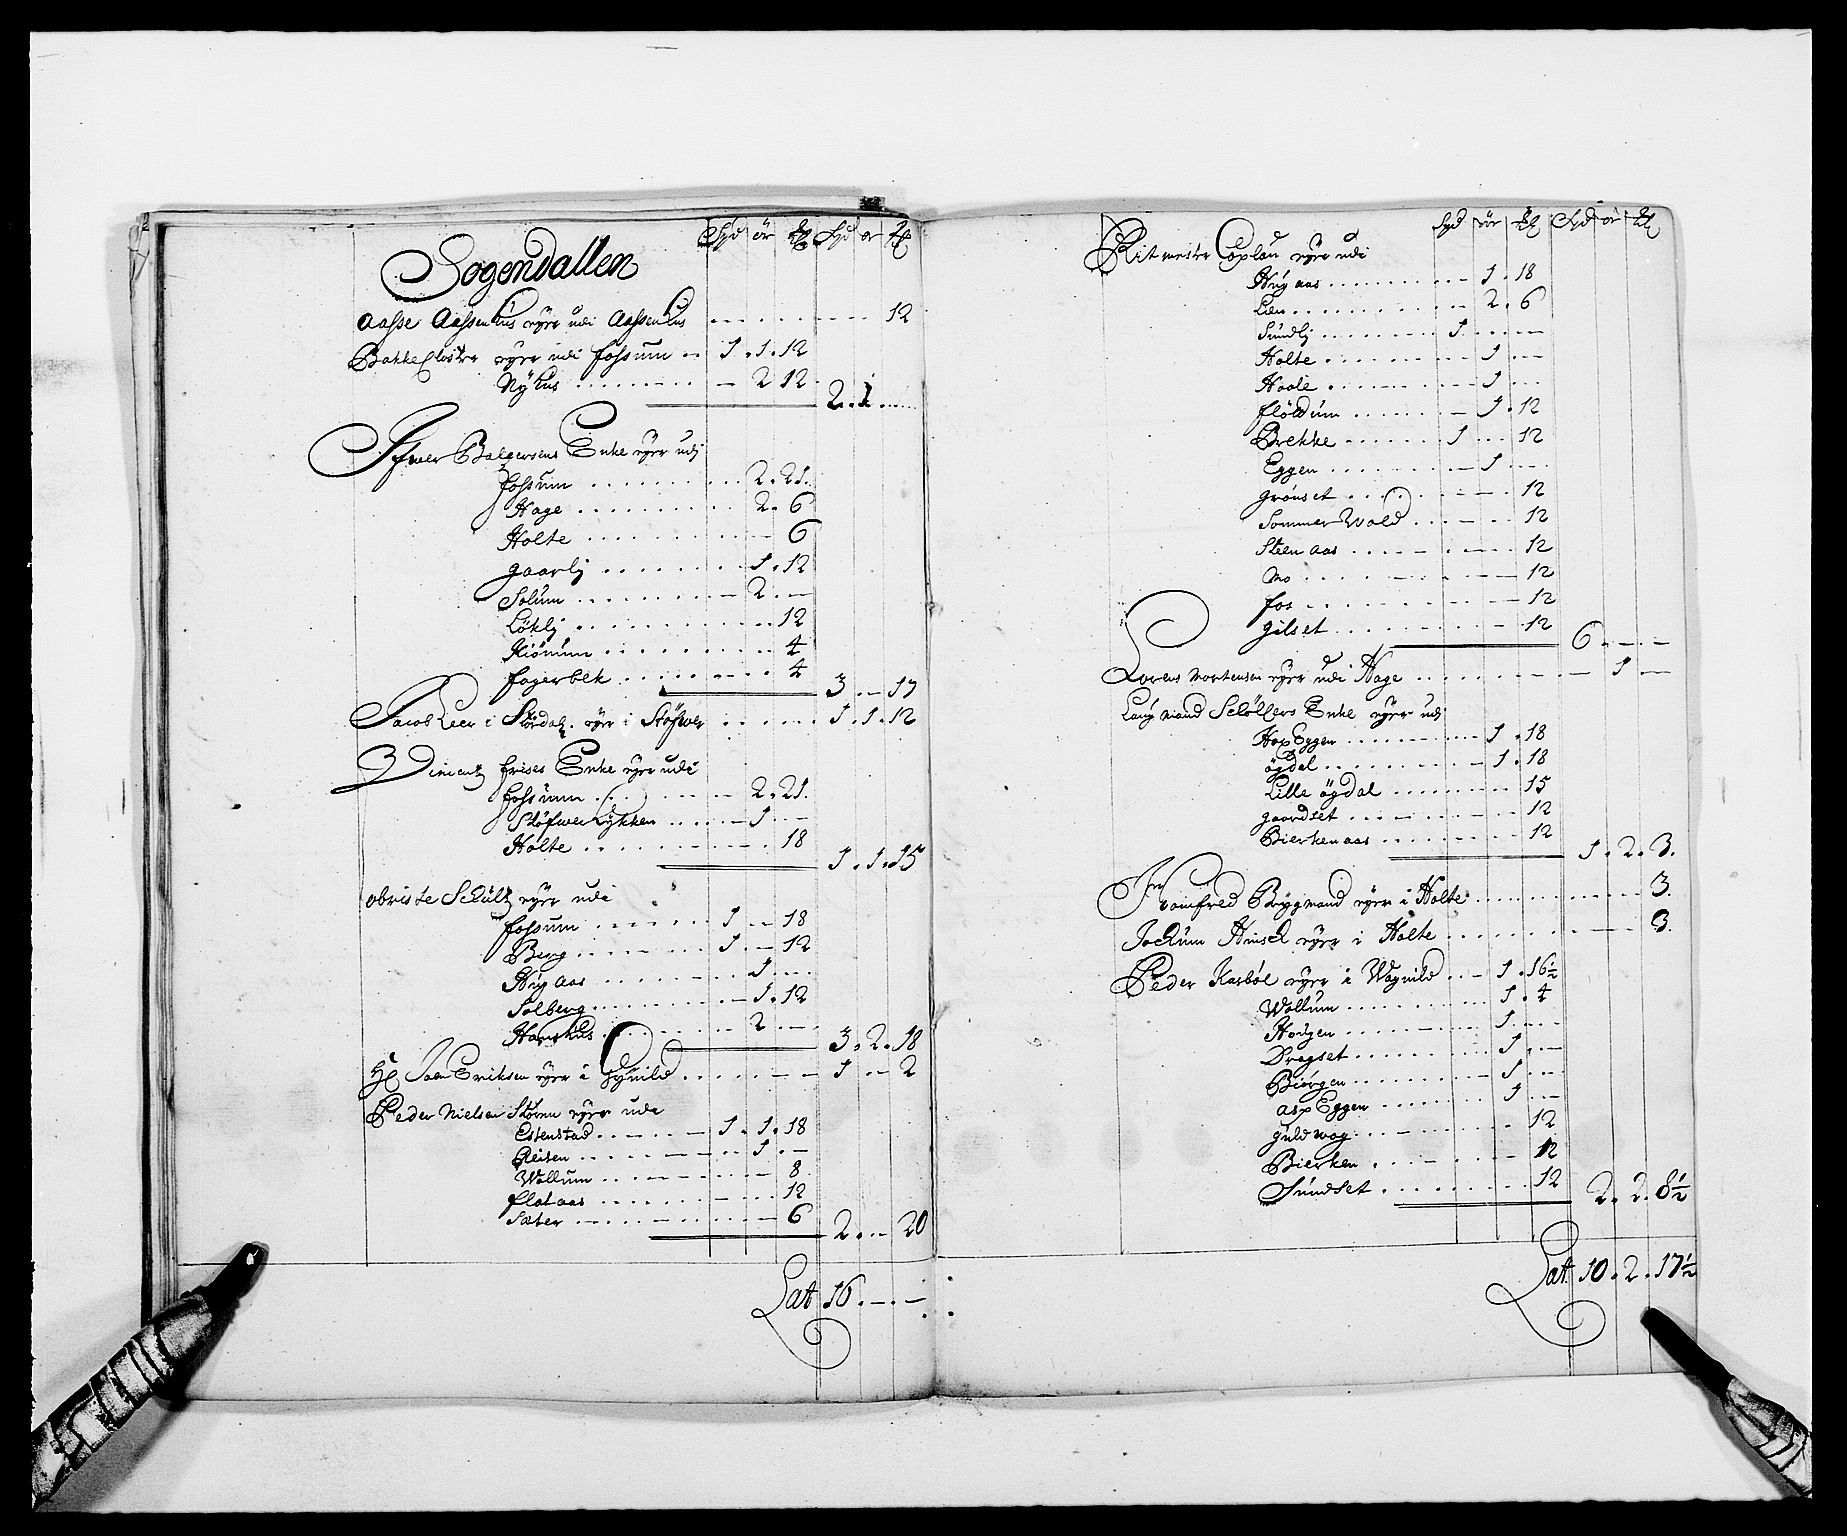 Spd ör Spd ör
Sogendallen
Aasse Aassenhus eyer udi Aassenhus 12
Bakke Closter eyer udi Fossum 1 . 1 . 12
Nyhus 2 12
2 . 1 .
Ifwer Balgersens Enke eyer udj
Fossum 2 . 21 .
Hage 2 . 6
Holte 6
gaarlj 1 . 12
Solum 2
Löklj 12
Kiönum 4
fagerbek 4
3 17
Jacob Leer i Stördal. eyer i Stöfwer 1 . 1 . 12
frises Enke eyer udi
Fossum 2 . 21 .
Stöfwerløkken 1
Holte 18
1 . 1 . 15
obriste Schultz eyer udi
Fossum 1 18
Berg 1 12
Huy aas 1
Solberg 1 . 12
Hanshus 2
3 . 2 . 18
Hr Joen Eriksen eyer i 1 2
Peder Nielsen Stören eyer udi
Estenstad 1 . 1 . 18
Reiten 1
Wollum 8
flataas 12
Sæter 6
2 20
Lat 16
Spd ör Spd ör
Ritmester Coplau eyer udi
Huy aas 1 . 18
Lien 2 . 6
Sundlj 1
Holte 1
Haale 1
flöttum 1 . 12
Brekke 1 12
Eggen 1
grönset 12
Sommer Wold 12
Steen aas 12
Mo 12
fos 12
gilset 12
6
Lorens Mortensen eyer udi Hage 1
Laugmand Schöllers Enke eyer udj
Hox Eggen 1 . 18
ögdal 1 . 18
Lille ögdal 15
gaardset 12
Bierkenaas 12
1 . 2 . 3 .
Brygmand eyer i Holte 3 .
Jochum Hinsch eyer i Holte 3 .
Peder Karböl eyer i Wagnild 1 . 16½
Wollum 1 . 4
Hougen 1
Dragset 1
Biörgen 1
asp Eggen 1
guldwog 12
Bierken 12
Sundset 12
2 . 2 . 8½
Lat 10 . 2 . 17½